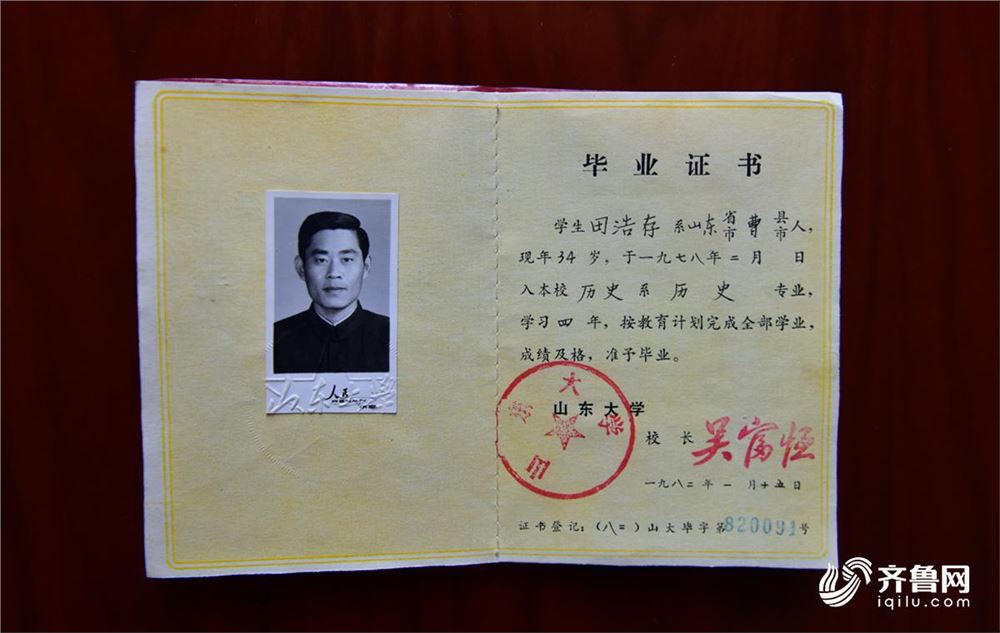 人民
山东大学
毕业证书
学生田浩存系山东省市曹县市人，
现年34岁，于一九七八年二月 日
入本校历史系历史专业，
学习四年，按教育计划完成全部学业，
成绩及格，准予毕业。
山东大学
山东大学
校长 吴富恒
一九八二年一月十五日
证书登记：（八二）山大毕字第820091号
齐鲁网
iqilu.com